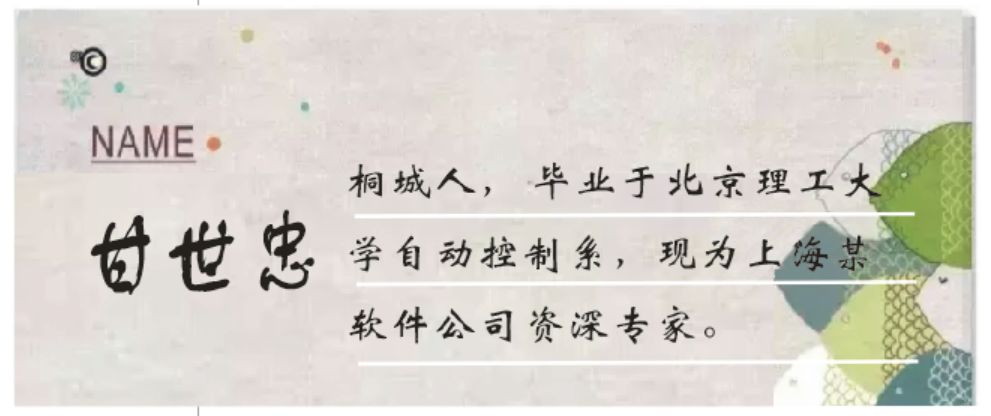 ©
NAME
甘世忠
桐城人，毕业于北京理工大
学自动控制系，现为上海某
软件公司资深专家。